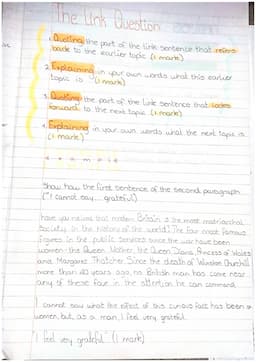 The Link Question
1. Quoting the part of the link sentence that refers
back to the earlier topic (1 mark)
2. Explaining in your own words what this earlier
topic is (1 mark)
3. Quoting the part of the link sentence that looks
forward to the next topic (1 mark)
4. Explaining in your own words what the next topic is
(1 mark)
Example
Show how the first sentence of the second paragraph
("I cannot say... grateful")
have you realised that modern Britain is the most matriarchal
society in the history of the world? The four most famous
figures in the public services since the war have been
women - the Queen Mother, the Queen, Diana, Princess of Wales
and Margaret Thatcher. Since the death of Winston Churchill
more than 40 years ago, no British man has come near
any of these four in the attention he can command.
I cannot say what the effect of this curious fact has been on
women, but, as a man I feel very grateful.
"I feel very grateful" (1 mark)